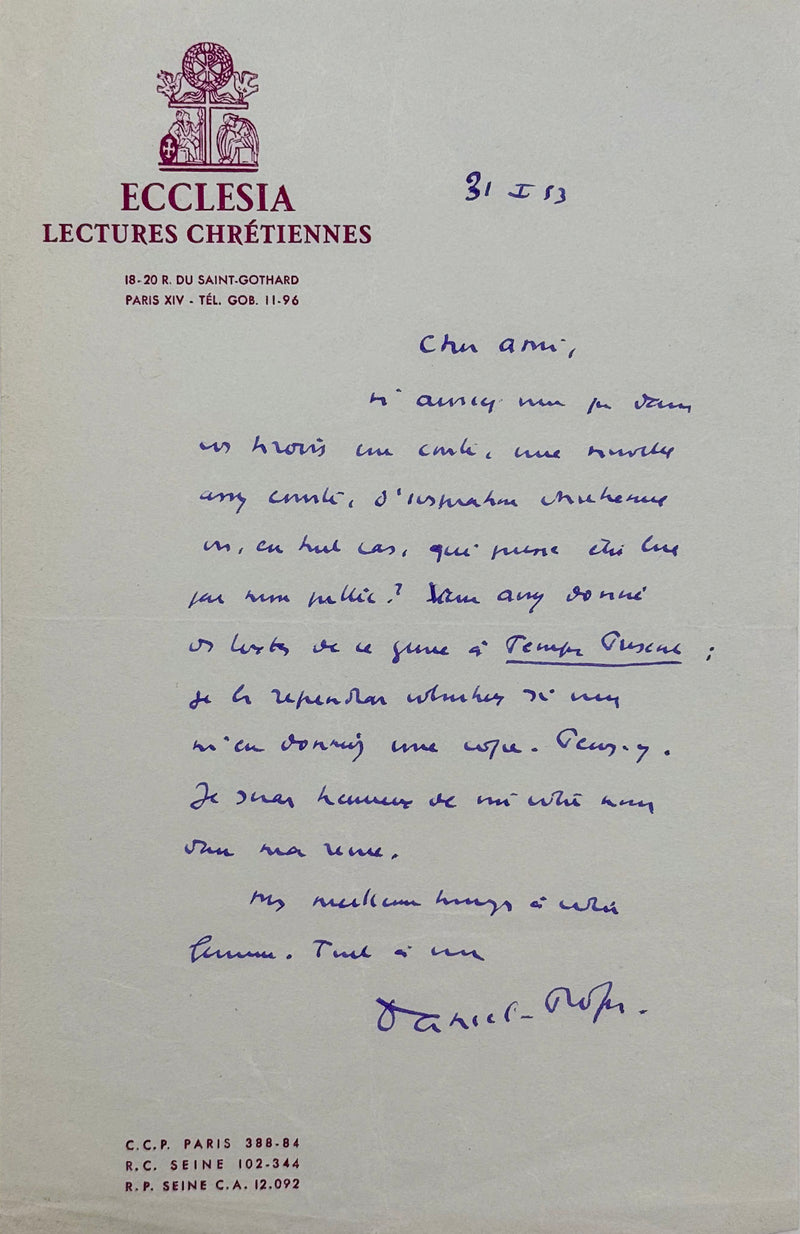 ECCLESIA
LECTURES CHRÉTIENNES
18-20 R. DU SAINT-GOTHARD
PARIS XIV - TÉL. GOB. 11-96
31 I 53
Cher ami,
N'auriez vous pas dans
vos tiroirs un conte, une nouvelle
assez courte, d'inspiration chrétienne
ou, en tout cas, qui puisse être lue
par mon public? Vous avez donné
des textes de ce genre à Temps Présent ;
je les reprendrais volontiers si vous
m'en donniez une copie. Pensez-y.
Je serais heureux de voir votre nom
dans ma revue.
Mes meilleurs hommages à votre
femme. Tout à vous
Daniel-Rops.
C.C.P. PARIS 388-84
R.C. SEINE 102-344
R.P. SEINE C.A. 12.092